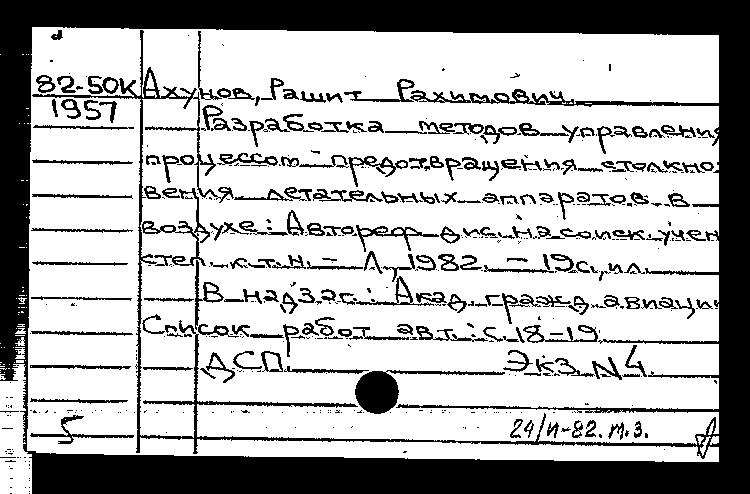 82-50К Ахунов, Рашит Рахимович.
1957 Разработка методов управления
процессом предотвращения столкно-
вения летательных аппаратов в
воздухе: Автореф. дис. на соиск. учен
степ. к.т.н. - Л., 1982. - 19с., ил.
В надзаг.: Акад. гражд. авиации
Список работ авт.: с. 18-19
ДСП. Экз. N4.
5 24/п-82. т.3.